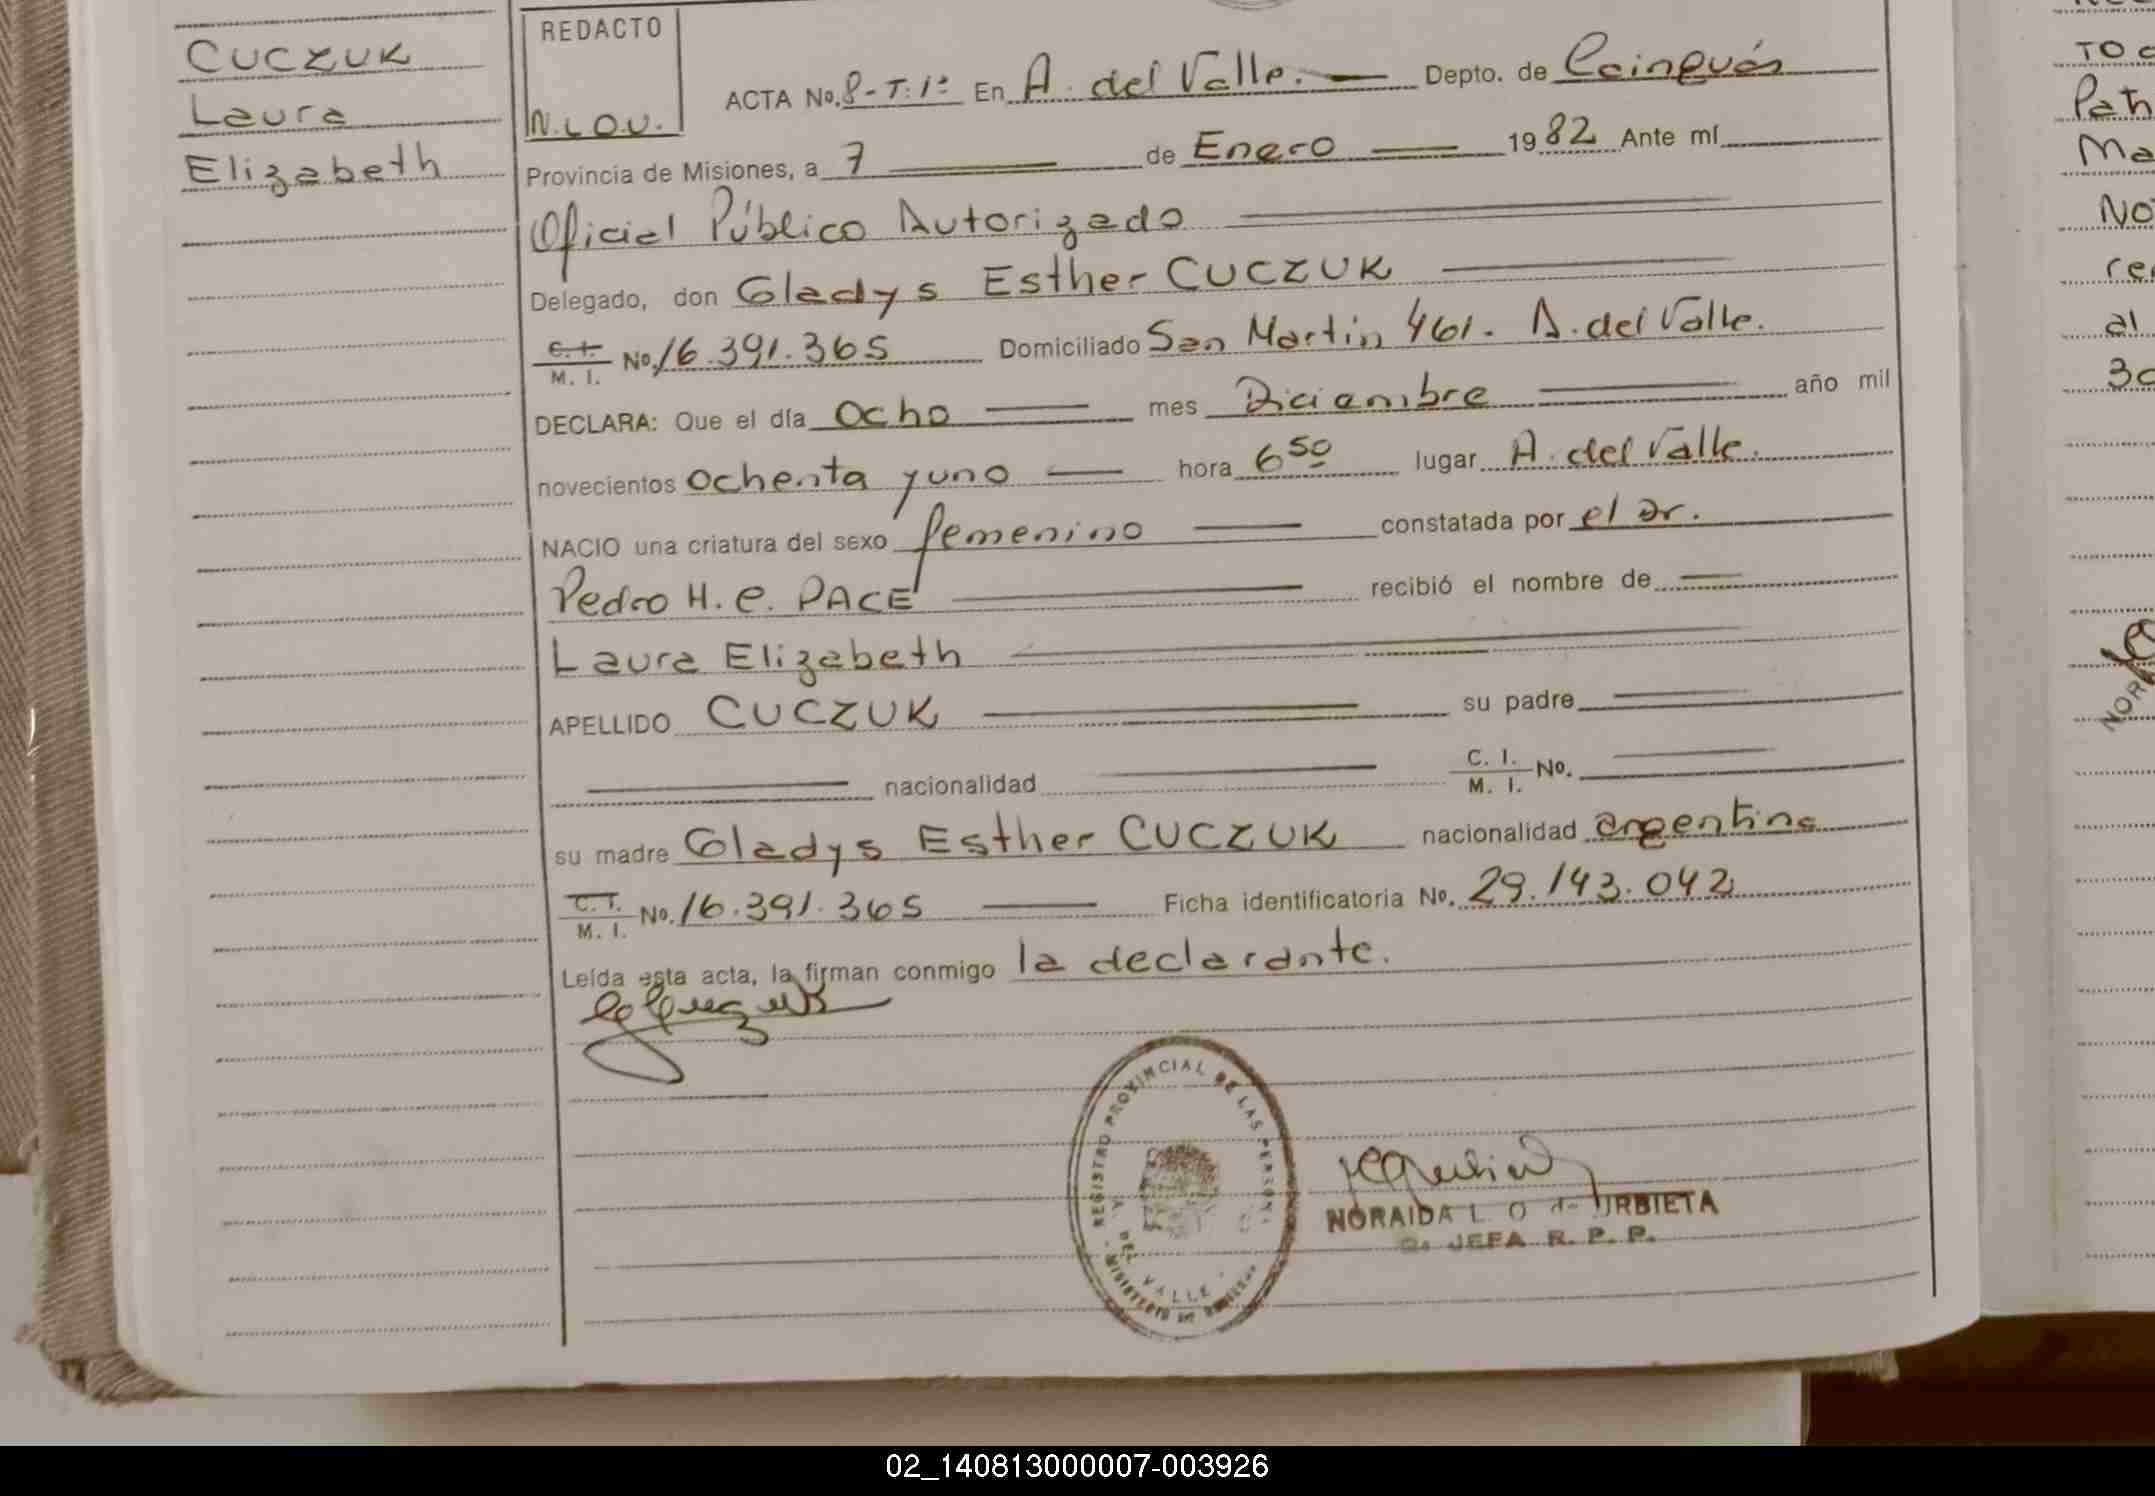 CUCZUK
Laura
Elizabeth
REDACTO
N.L.O.U.
ACTA No. 8-T:1º En A. del Valle. Depto. de Cainguás
Provincia de Misiones, a 7 de Enero 1982 Ante mí
Oficial Público Autorizado
Delegado, don Gladys Esther CUCZUK
C. I. / M. I. No. 16.391.365 Domiciliado San Martin 461. A. del Valle.
DECLARA: Que el día ocho mes Diciembre año mil
novecientos ochenta y uno hora 6 50 lugar A. del Valle.
NACIO una criatura del sexo femenino constatada por el Dr.
Pedro H. C. PACE recibió el nombre de
Laura Elizabeth
APELLIDO CUCZUK su padre
nacionalidad C. I. / M. I. No.
su madre Gladys Esther CUCZUK nacionalidad argentina
C. I. / M. I. No. 16.391.365 Ficha identificatoria No. 29.143.042
Leída esta acta, la firman conmigo la declarante.
REGISTRO PROVINCIAL DE LAS PERSONAS
DEL VALLE
NORAIDA L. O. de URBIETA
JEFA R. P. P.
TO
Ma
No
al
02_140813000007-003926